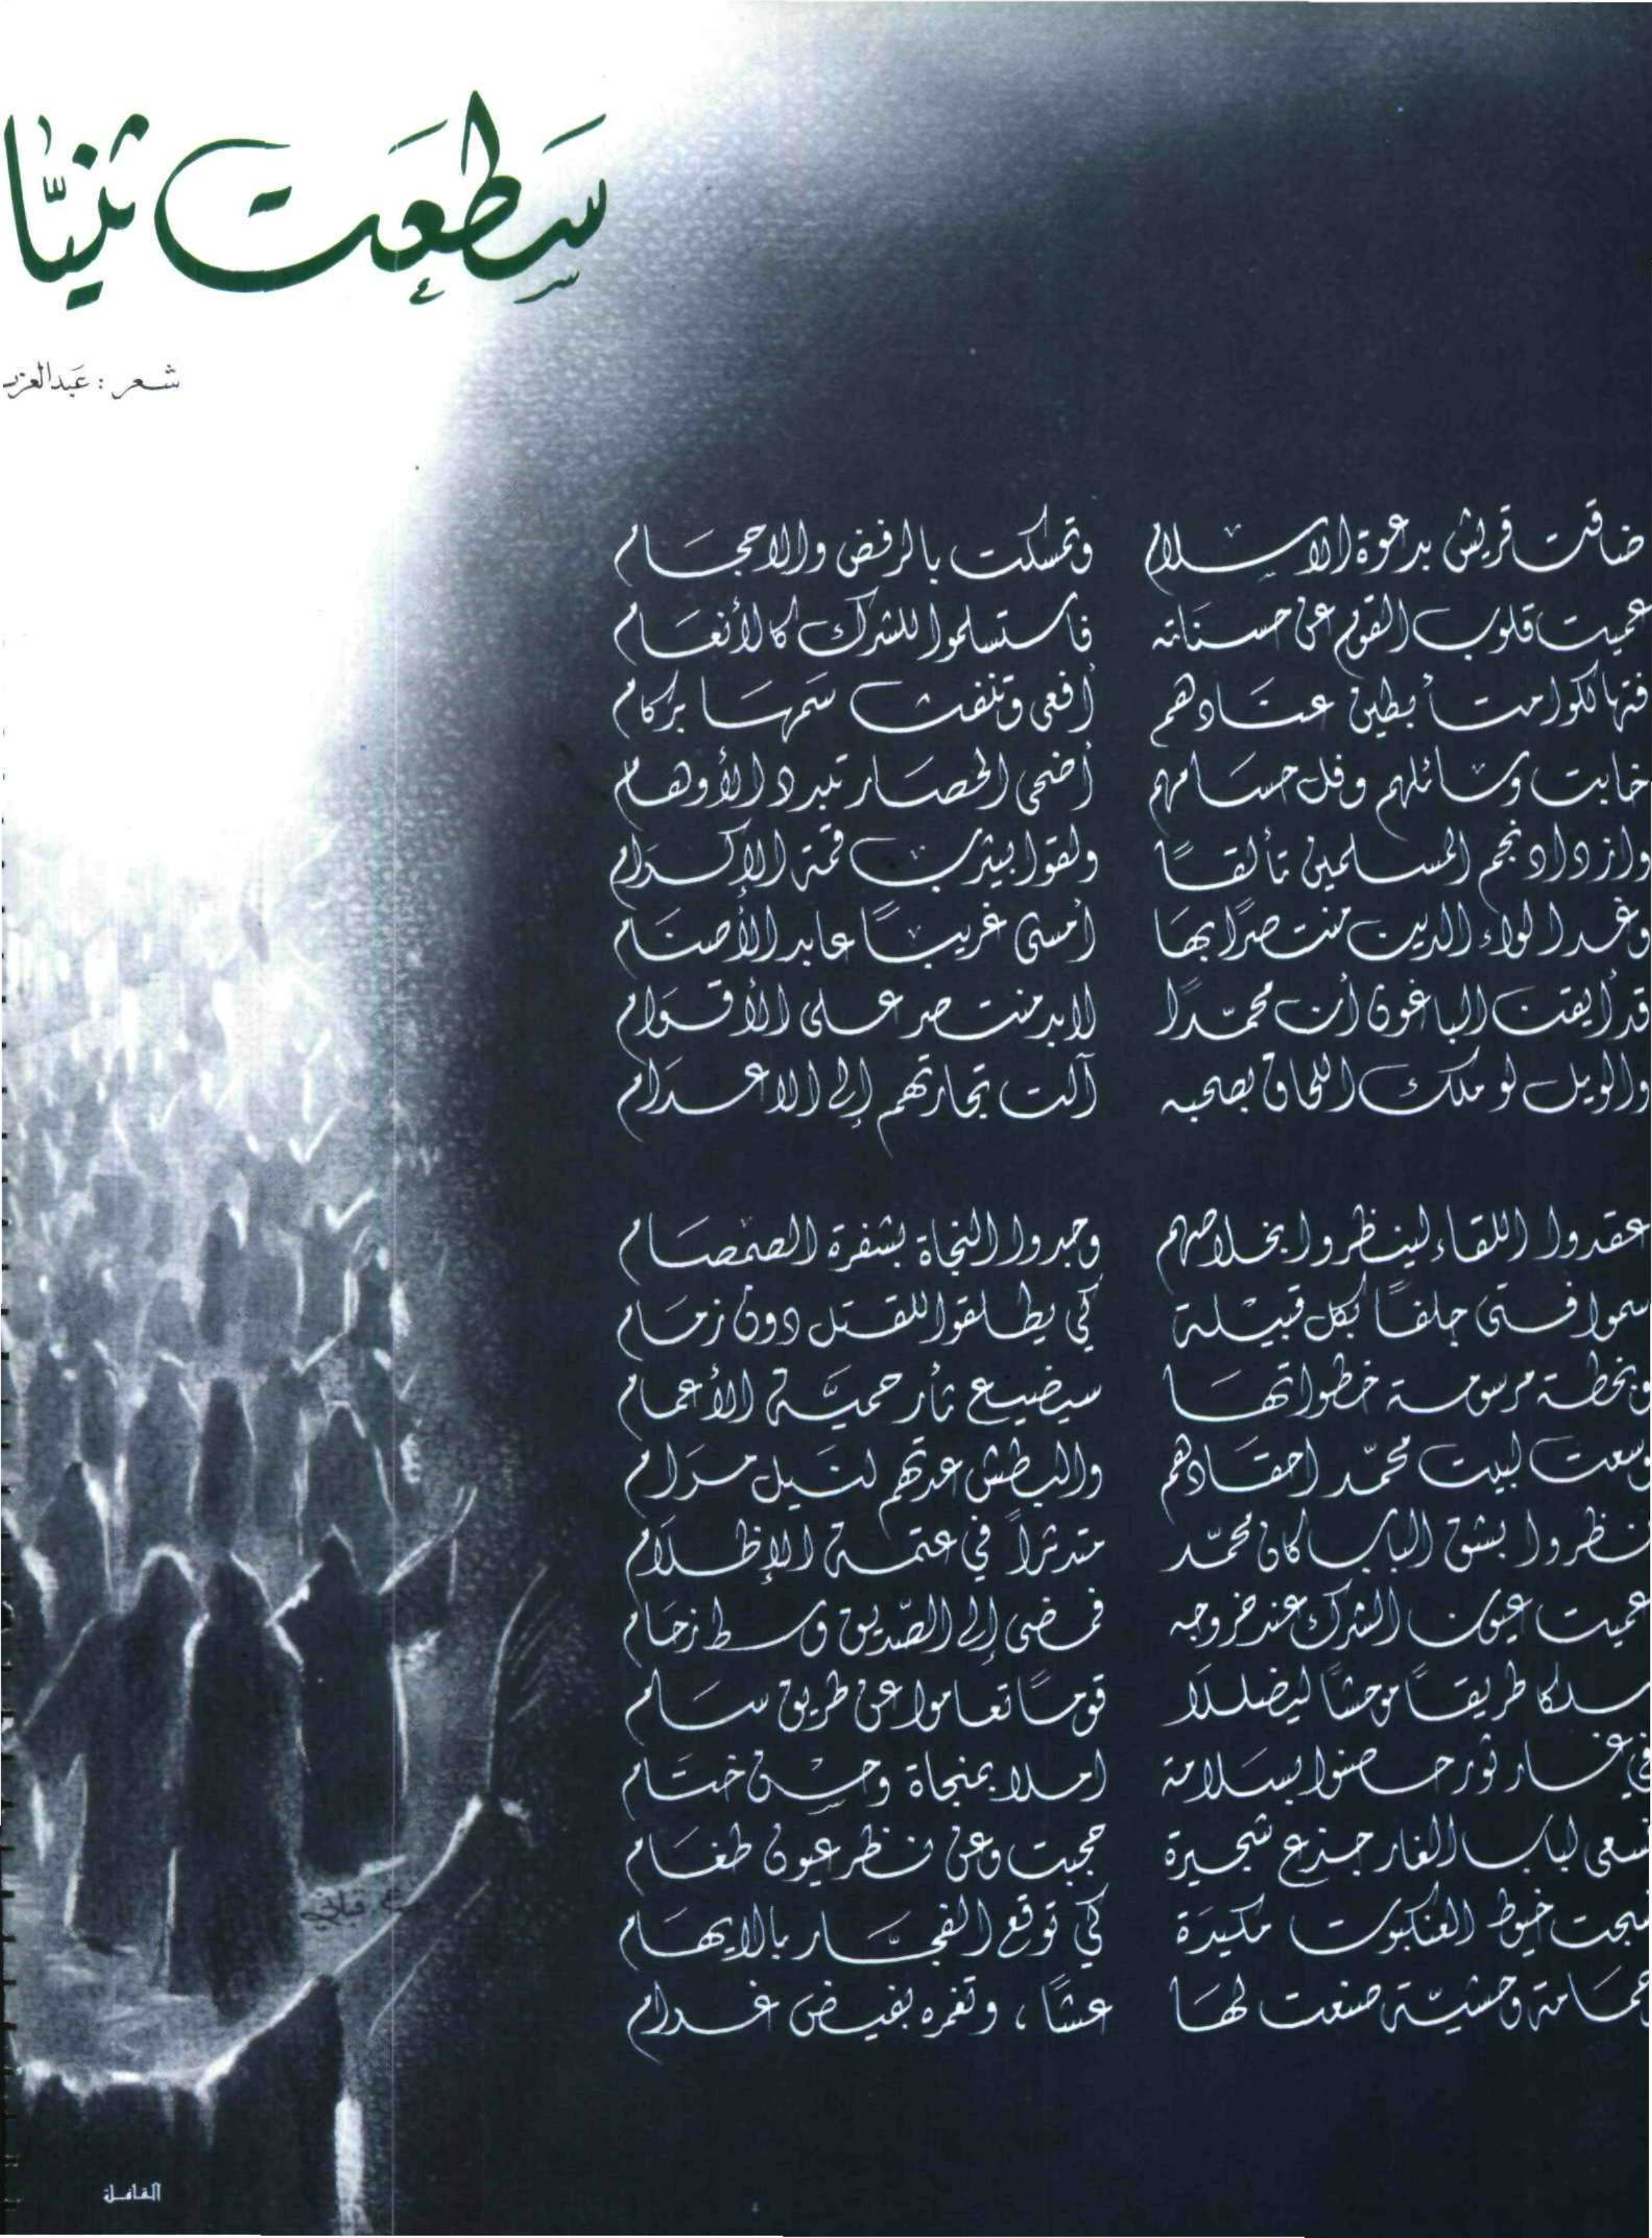 سَطعَت ثنيَّا
شعر : عَبدالعزيـ
ضاقت قريش بدعوة الاسلام وتمسكت بالرفض والاحجام
عميت قلوب القوم عن حسناته فاستسلموا للشرك كالأنعام
فتهالكوا متأبطين عتادهم أفعى وتنفث سمها بركام
خابت وسائلهم وفل حسامهم أضحى الحصار تبدد الأوهام
وازداد نجم المسلمين تألقًا ولقوا بيثرب قمة الإكرام
وغدا لواء الدين منتصرًا بها أمسى غريبًا عابد الأصنام
قد أيقن الباغون أن محمّدًا لابد منتصر على الأقوام
والويل لو ملك اللحاق بصحبه آلت تجارتهم إلى الاعدام
عقدوا اللقاء لينظروا بخلاصهم وجدوا النجاة بشفرة الصمصام
سموا فتى جلفًا بكل قبيلة كي يطلقوا للقتل دون زمام
وبخطة مرسومة خطواتها سيضيع ثأر حميَّة الأعمام
وسعت لبيت محمّد احقادهم والبطش عدتهم لنيل مرام
نظروا بشق الباب كان محمّد متدثراً في عتمة الإظلام
عميت عيون الشرك عند خروجه فمضى إلى الصّديق وسط زحام
سلكا طريقًا موحشًا ليضللا قومًا تعاموا عن طريق سام
في غار ثور حصنوا بسلامة املا بمنجاة وحسن ختام
سعى لباب الغار جذع شجيرة حجبت وعن نظر عيون طغام
نسجت خيوط العنكبوت مكيدة كي توقع الفجّار بالايهام
حمامة وحشيّة صنعت لها عشًا ، وتغمره بفيض غرام
القافلة